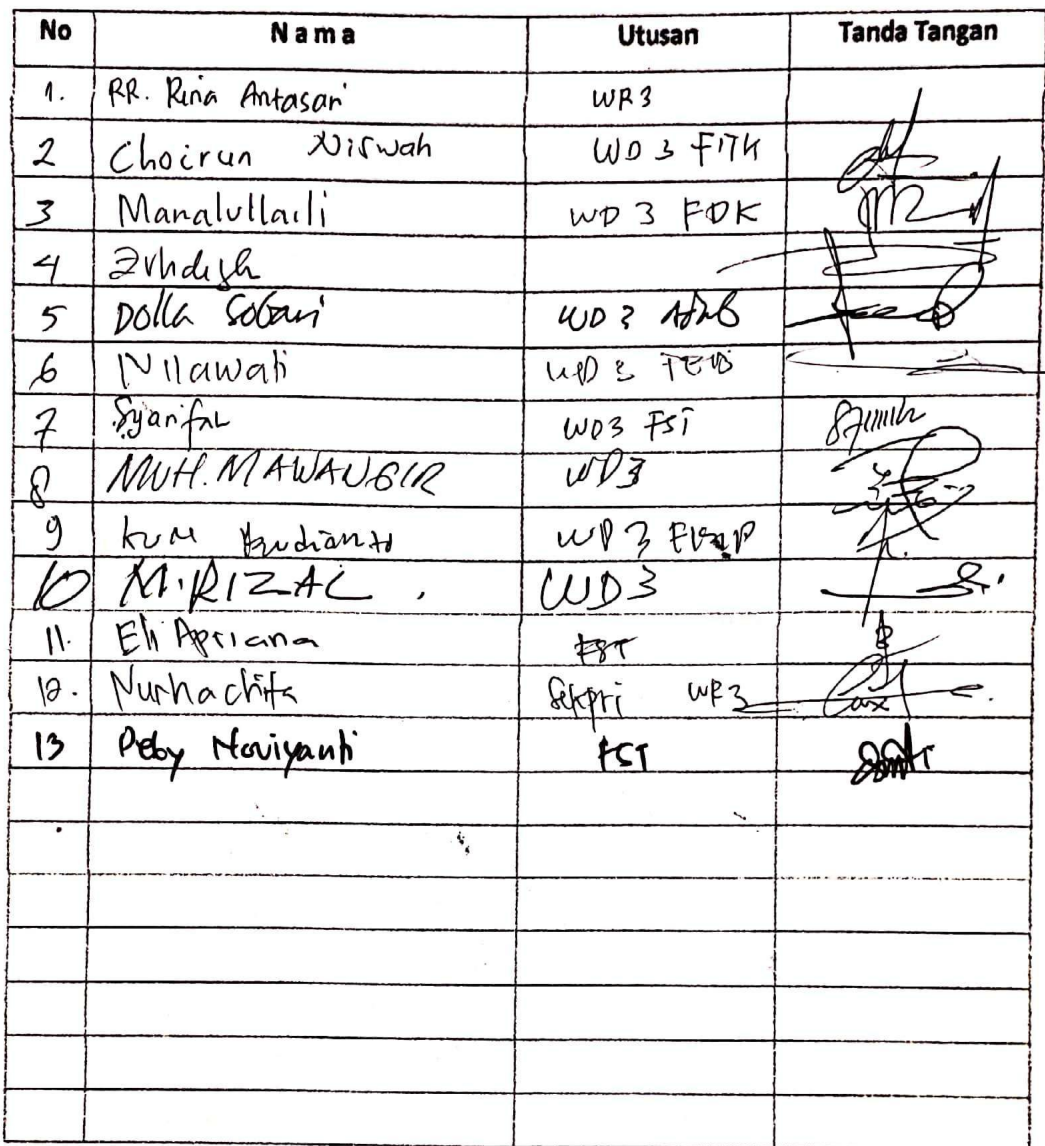 No Nama Utusan Tanda Tangan
1. RR. Rina Antasari WR3
2 Choirun Niswah WD 3 FITK
3 Manalullaili WD 3 FDK
4
5 Dolla Sobari WD 3
6 Nilawati WD 3
7 Syarifah WD3 FST
8 MUH. MAWANGIR WD3
9 Kun Budianto WD 3
10 M. RIZAL . WD3
11. Eli Apriana FST
12. Nurhachita Sekpri WR3
13 Deby Noviyanti FST